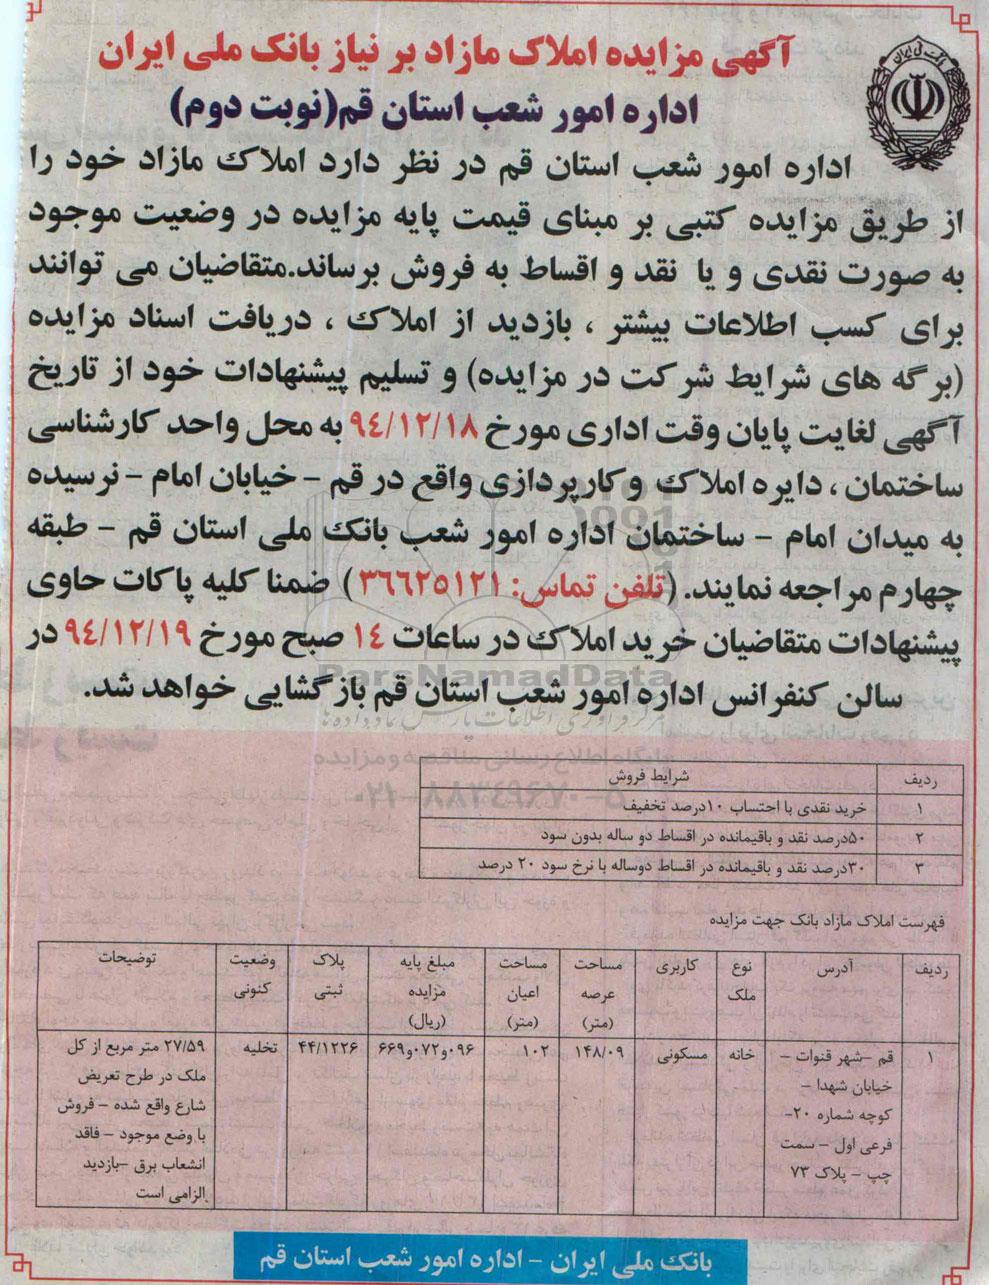 آگهی مزایده املاک مازاد بر نیاز بانک ملی ایران
اداره امور شعب استان قم(نوبت دوم)
اداره امور شعب استان قم در نظر دارد املاک مازاد خود را
از طریق مزایده کتبی بر مبنای قیمت پایه مزایده در وضعیت موجود
به صورت نقدی و یا نقد و اقساط به فروش برساند.متقاضیان می توانند
برای کسب اطلاعات بیشتر ، بازدید از املاک ، دریافت اسناد مزایده
(برگه های شرایط شرکت در مزایده) و تسلیم پیشنهادات خود از تاریخ
آگهی لغایت پایان وقت اداری مورخ ۹۴/۱۲/۱۸ به محل واحد کارشناسی
ساختمان ، دایره املاک و کارپردازی واقع در قم - خیابان امام - نرسیده
به میدان امام - ساختمان اداره امور شعب بانک ملی استان قم - طبقه
چهارم مراجعه نمایند. (تلفن تماس: ۳۶۶۲۵۱۲۱) ضمنا کلیه پاکات حاوی
پیشنهادات متقاضیان خرید املاک در ساعات ۱۴ صبح مورخ ۹۴/۱۲/۱۹ در
سالن کنفرانس اداره امور شعب استان قم بازگشایی خواهد شد.
ParsNamadData
مرکز فرآوری اطلاعات پارس نماد داده ها
پایگاه اطلاع رسانی مناقصه و مزایده
ردیف شرایط فروش
۱ خرید نقدی با احتساب ۱۰درصد تخفیف
۲ ۵۰درصد نقد و باقیمانده در اقساط دو ساله بدون سود
۳ ۳۰درصد نقد و باقیمانده در اقساط دوساله با نرخ سود ۲۰ درصد
فهرست املاک مازاد بانک جهت مزایده
ردیف آدرس نوع ملک کاربری مساحت عرصه (متر) مساحت اعیان (متر) مبلغ پایه مزایده (ریال) پلاک ثبتی وضعیت کنونی توضیحات
۱ قم -شهر قنوات - خانه مسکونی ۱۴۸/۰۹ ۱۰۲ ۶۶۹و۰۷۲و۰۹۶ ۴۴/۱۲۲۶ تخلیه ۲۷/۵۹ متر مربع از کل
خیابان شهدا - ملک در طرح تعریض
کوچه شماره ۲۰- شارع واقع شده - فروش
فرعی اول - سمت با وضع موجود - فاقد
چپ - پلاک ۷۳ انشعاب برق -بازدید
الزامی است
بانک ملی ایران - اداره امور شعب استان قم